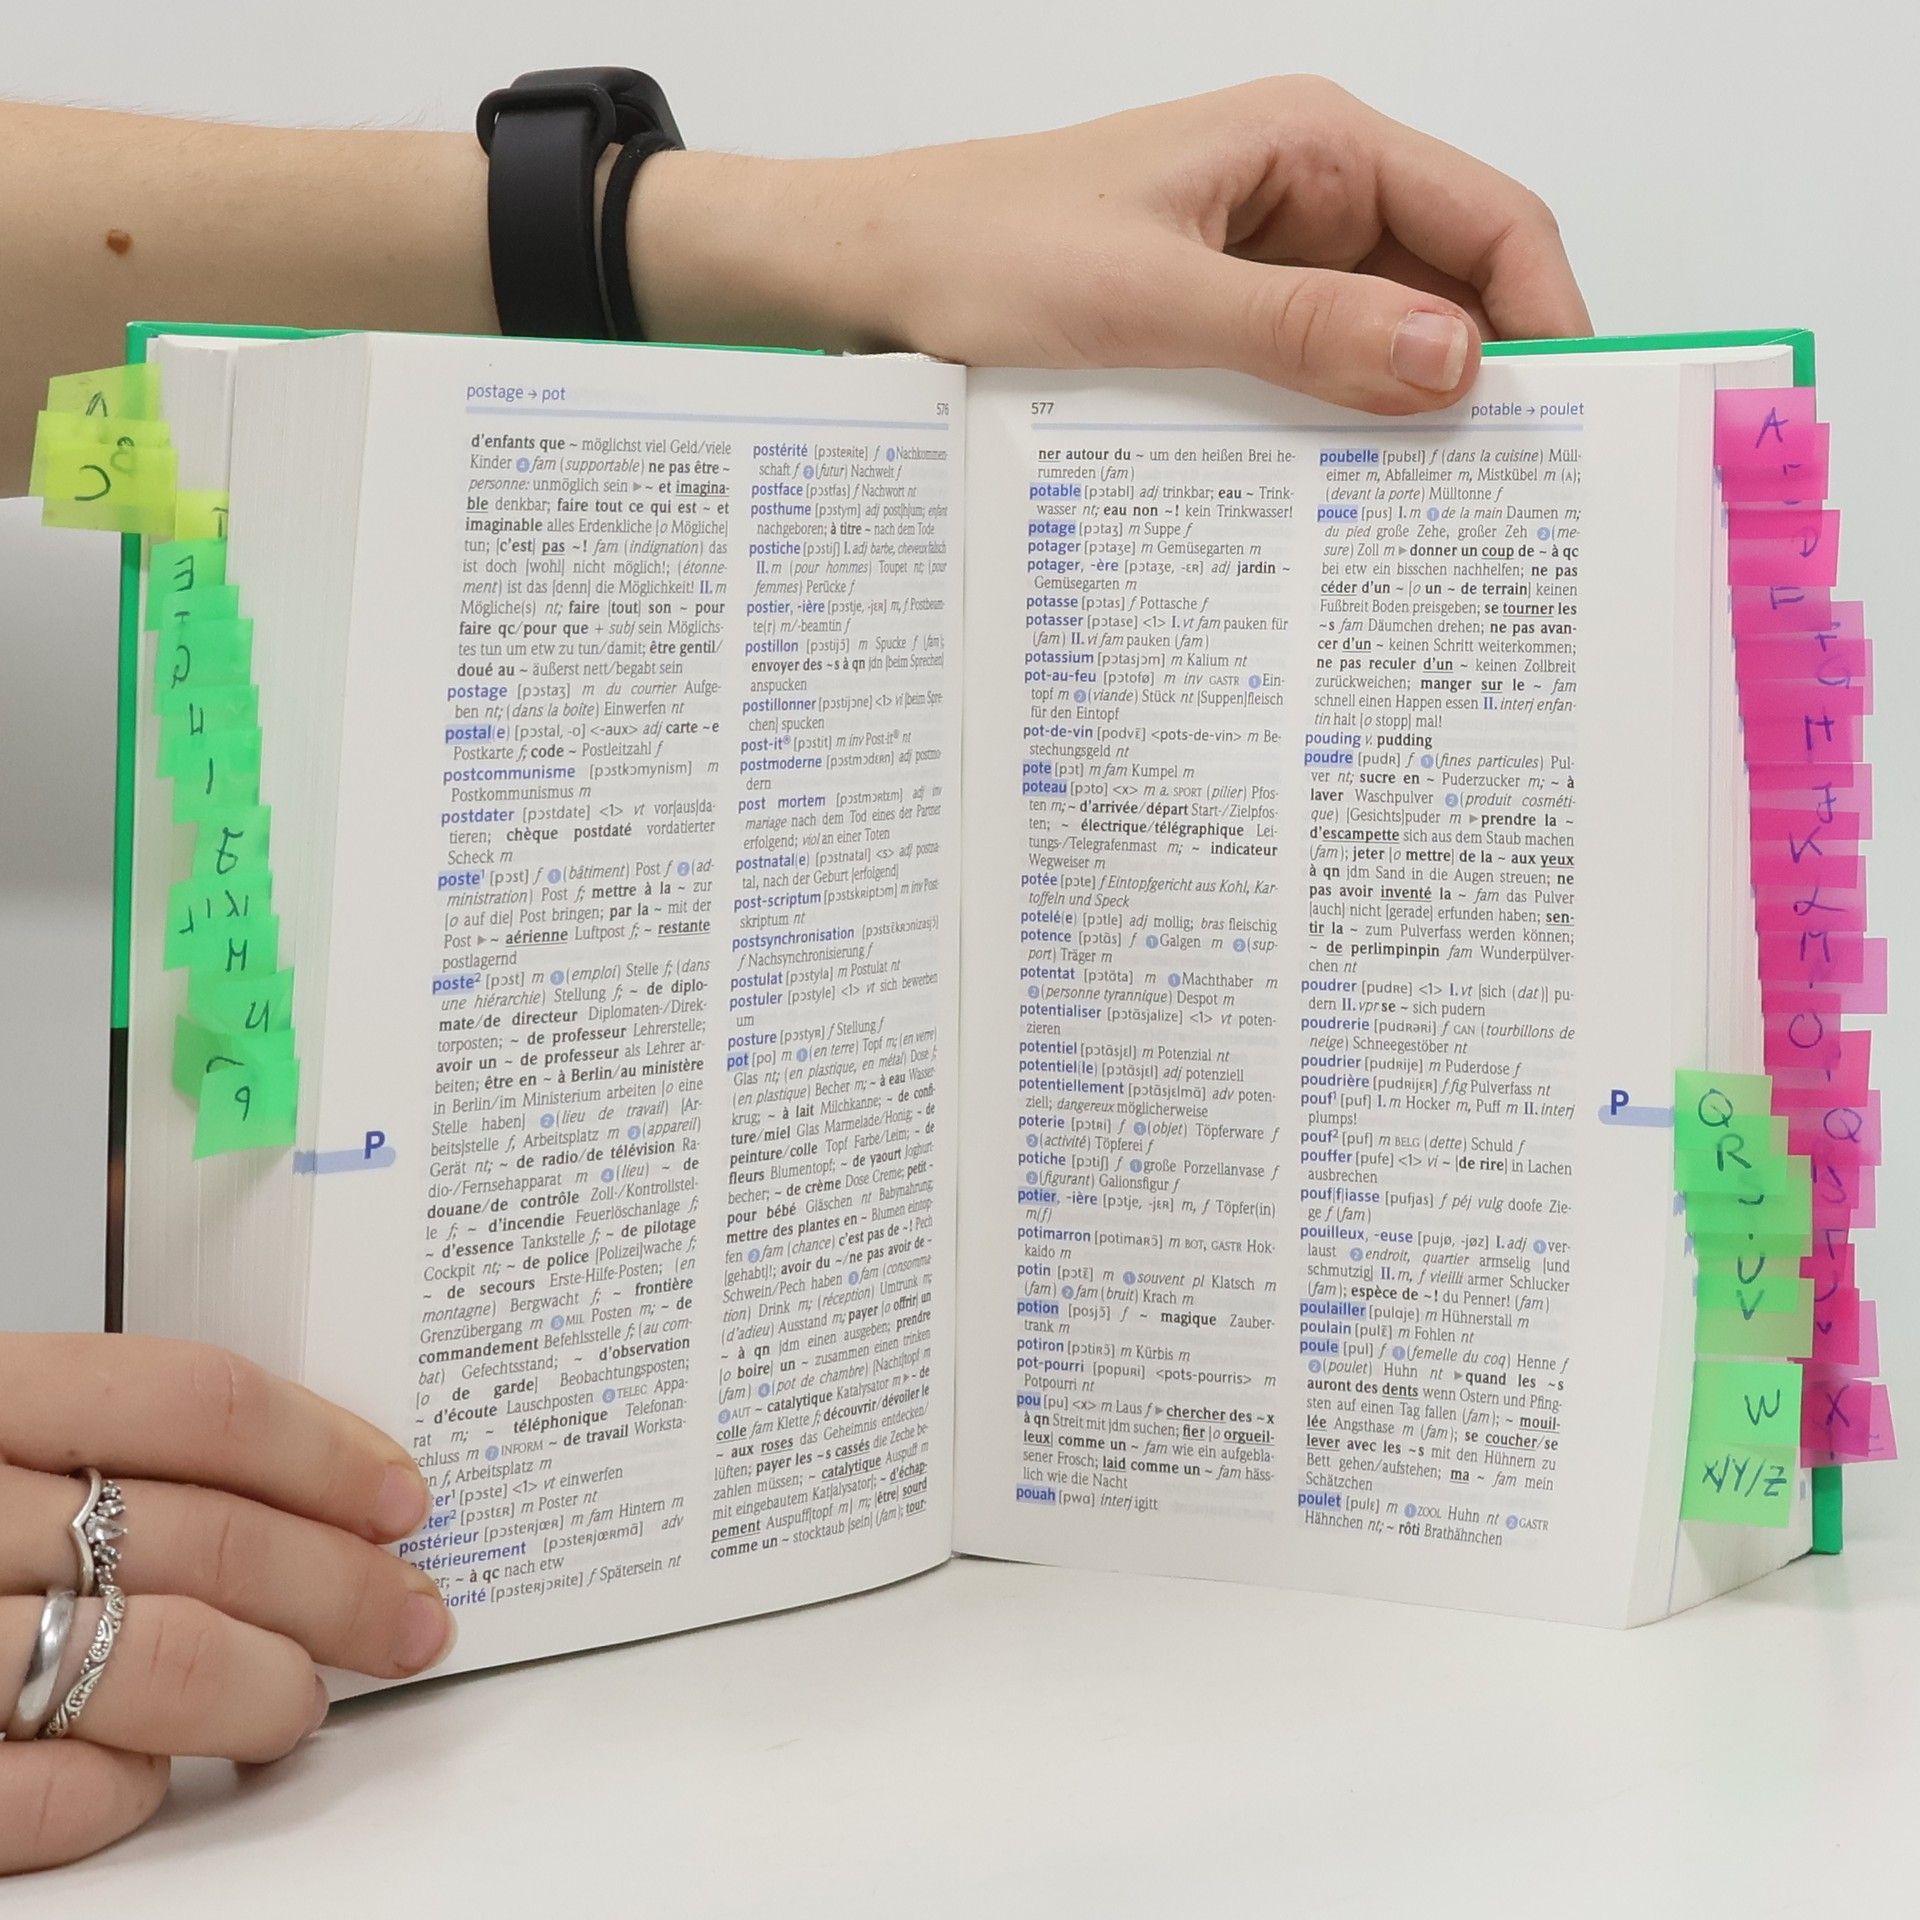 postage → pot
576
d'enfants que ~ möglichst viel Geld/viele
Kinder 4 fam (supportable) ne pas être ~
personne: unmöglich sein ▸ ~ et imagina-
ble denkbar; faire tout ce qui est ~ et
imaginable alles Erdenkliche [o Mögliche]
tun; [c'est] pas ~! fam (indignation) das
ist doch [wohl] nicht möglich!; (étonne-
ment) ist das [denn] die Möglichkeit! II. m
Mögliche(s) nt; faire [tout] son ~ pour
faire qc/pour que + subj sein Möglichs-
tes tun um etw zu tun/damit; être gentil/
doué au ~ äußerst nett/begabt sein
postage [pɔstaʒ] m du courrier Aufge-
ben nt; (dans la boîte) Einwerfen nt
postal(e) [pɔstal, -o] <-aux> adj carte ~e
Postkarte f; code ~ Postleitzahl f
postcommunisme [pɔstkɔmynism] m
Postkommunismus m
postdater [pɔstdate] <1> vt vor[aus]da-
tieren; chèque postdaté vordatierter
Scheck m
poste¹ [pɔst] f 1 (bâtiment) Post f 2 (ad-
ministration) Post f; mettre à la ~ zur
[o auf die] Post bringen; par la ~ mit der
Post ▸ ~ aérienne Luftpost f; ~ restante
postlagernd
poste² [pɔst] m 1 (emploi) Stelle f; (dans
une hiérarchie) Stellung f; ~ de diplo-
mate/de directeur Diplomaten-/Direk-
torposten; ~ de professeur Lehrerstelle;
avoir un ~ de professeur als Lehrer ar-
beiten; être en ~ à Berlin/au ministère
in Berlin/im Ministerium arbeiten [o eine
Stelle haben] 2 (lieu de travail) [Ar-
beits]stelle f, Arbeitsplatz m 3 (appareil)
Gerät nt; ~ de radio/de télévision Ra-
dio-/Fernsehapparat m 4 (lieu) ~ de
douane/de contrôle Zoll-/Kontrollstel-
le f; ~ d'incendie Feuerlöschanlage f;
~ d'essence Tankstelle f; ~ de pilotage
Cockpit nt; ~ de police [Polizei]wache f;
~ de secours Erste-Hilfe-Posten; (en
montagne) Bergwacht f; ~ frontière
Grenzübergang m 5 MIL Posten m; ~ de
commandement Befehlsstelle f; (au com-
bat) Gefechtsstand; ~ d'observation
[o de garde] Beobachtungsposten;
~ d'écoute Lauschposten 6 TELEC Appa-
rat m; ~ téléphonique Telefonan-
schluss m 7 INFORM ~ de travail Worksta-
f, Arbeitsplatz m
[pɔste] <1> vt einwerfen
[pɔstɛʀ] m Poster nt
postérieur [pɔsteʀjœʀ] m fam Hintern m
[pɔsteʀjœʀmɑ̃] adv
~ à qc nach etw
[pɔsteʀjɔʀite] f Spätersein nt
postérité [pɔsteʀite] f 1 Nachkommen-
schaft f 2 (futur) Nachwelt f
postface [pɔstfas] f Nachwort nt
posthume [pɔstym] adj post[h]um; enfant
nachgeboren; à titre ~ nach dem Tode
postiche [pɔstiʃ] I. adj barbe, cheveux falsch
II. m (pour hommes) Toupet nt; (pour
femmes) Perücke f
postier, -ière [pɔstje, -jɛʀ] m, f Postbeam-
te(r) m/-beamtin f
postillon [pɔstijɔ̃] m Spucke f (fam);
envoyer des ~s à qn jdn [beim Sprechen]
anspucken
postillonner [pɔstijɔne] <1> vi [beim Spre-
chen] spucken
post-it® [pɔstit] m inv Post-it® nt
postmoderne [pɔstmɔdɛʀn] adj postmo-
dern
post mortem [pɔstmɔʀtɛm] adj inv
mariage nach dem Tod eines der Partner
erfolgend; viol an einer Toten
postnatal(e) [pɔstnatal] <s> adj postna-
tal, nach der Geburt [erfolgend]
post-scriptum [pɔstskʀiptɔm] m inv Post-
skriptum nt
postsynchronisation [pɔstsɛ̃kʀɔnizasjɔ̃]
f Nachsynchronisierung f
postulat [pɔstyla] m Postulat nt
postuler [pɔstyle] <1> vt sich bewerben
um
posture [pɔstyʀ] f Stellung f
pot [po] m 1 (en terre) Topf m; (en verre)
Glas nt; (en plastique, en métal) Dose f;
(en plastique) Becher m; ~ à eau Wasser-
krug; ~ à lait Milchkanne; ~ de confi-
ture/miel Glas Marmelade/Honig; ~ de
peinture/colle Topf Farbe/Leim; ~ de
fleurs Blumentopf; ~ de yaourt Joghurt-
becher; ~ de crème Dose Creme; petit ~
pour bébé Gläschen nt Babynahrung;
mettre des plantes en ~ Blumen eintop-
fen 2 fam (chance) c'est pas de ~! Pech
[gehabt]!; avoir du ~/ne pas avoir de ~
Schwein/Pech haben 3 fam (consomma-
tion) Drink m; (réception) Umtrunk m;
(d'adieu) Ausstand m; payer [o offrir] un
~ à qn jdm einen ausgeben; prendre
[o boire] un ~ zusammen einen trinken
(fam) 4 (pot de chambre) [Nacht]topf m
5 AUT ~ catalytique Katalysator m ▸ ~ de
colle fam Klette f; découvrir/dévoiler le
~ aux roses das Geheimnis entdecken/
lüften; payer les ~s cassés die Zeche be-
zahlen müssen; ~ catalytique Auspuff m
mit eingebautem Kat[alysator]; ~ d'échap-
pement Auspuff[topf m] m; [être] sourd
comme un ~ stocktaub [sein] (fam); tour-
P
577
potable → poulet
ner autour du ~ um den heißen Brei he-
rumreden (fam)
potable [pɔtabl] adj trinkbar; eau ~ Trink-
wasser nt; eau non ~! kein Trinkwasser!
potage [pɔtaʒ] m Suppe f
potager [pɔtaʒe] m Gemüsegarten m
potager, -ère [pɔtaʒe, -ɛʀ] adj jardin ~
Gemüsegarten m
potasse [pɔtas] f Pottasche f
potasser [pɔtase] <1> I. vt fam pauken für
(fam) II. vi fam pauken (fam)
potassium [pɔtasjɔm] m Kalium nt
pot-au-feu [pɔtofø] m inv GASTR 1 Ein-
topf m 2 (viande) Stück nt [Suppen]fleisch
für den Eintopf
pot-de-vin [podvɛ̃] <pots-de-vin> m Be-
stechungsgeld nt
pote [pɔt] m fam Kumpel m
poteau [pɔto] <x> m a. SPORT (pilier) Pfos-
ten m; ~ d'arrivée/départ Start-/Zielpfos-
ten; ~ électrique/télégraphique Lei-
tungs-/Telegrafenmast m; ~ indicateur
Wegweiser m
potée [pɔte] f Eintopfgericht aus Kohl, Kar-
toffeln und Speck
potelé(e) [pɔtle] adj mollig; bras fleischig
potence [pɔtɑ̃s] f 1 Galgen m 2 (sup-
port) Träger m
potentat [pɔtɑ̃ta] m 1 Machthaber m
2 (personne tyrannique) Despot m
potentialiser [pɔtɑ̃sjalize] <1> vt poten-
zieren
potentiel [pɔtɑ̃sjɛl] m Potenzial nt
potentiel(le) [pɔtɑ̃sjɛl] adj potenziell
potentiellement [pɔtɑ̃sjɛlmɑ̃] adv poten-
ziell; dangereux möglicherweise
poterie [pɔtʀi] f 1 (objet) Töpferware f
2 (activité) Töpferei f
potiche [pɔtiʃ] f 1 große Porzellanvase f
2 (figurant) Galionsfigur f
potier, -ière [pɔtje, -jɛʀ] m, f Töpfer(in)
m(f)
potimarron [pɔtimaʀɔ̃] m BOT, GASTR Hok-
kaido m
potin [pɔtɛ̃] m 1 souvent pl Klatsch m
(fam) 2 fam (bruit) Krach m
potion [posjɔ̃] f ~ magique Zauber-
trank m
potiron [pɔtiʀɔ̃] m Kürbis m
pot-pourri [popuʀi] <pots-pourris> m
Potpourri nt
pou [pu] <x> m Laus f ▸ chercher des ~x
à qn Streit mit jdm suchen; fier [o orgueil-
leux] comme un ~ fam wie ein aufgebla-
sener Frosch; laid comme un ~ fam häss-
lich wie die Nacht
pouah [pwa] interj igitt
poubelle [pubɛl] f (dans la cuisine) Müll-
eimer m, Abfalleimer m, Mistkübel m (A);
(devant la porte) Mülltonne f
pouce [pus] I. m 1 de la main Daumen m;
du pied große Zehe, großer Zeh 2 (me-
sure) Zoll m ▸ donner un coup de ~ à qc
bei etw ein bisschen nachhelfen; ne pas
céder d'un ~ [o un ~ de terrain] keinen
Fußbreit Boden preisgeben; se tourner les
~s fam Däumchen drehen; ne pas avan-
cer d'un ~ keinen Schritt weiterkommen;
ne pas reculer d'un ~ keinen Zollbreit
zurückweichen; manger sur le ~ fam
schnell einen Happen essen II. interj enfan-
tin halt [o stopp] mal!
pouding v. pudding
poudre [pudʀ] f 1 (fines particules) Pul-
ver nt; sucre en ~ Puderzucker m; ~ à
laver Waschpulver 2 (produit cosméti-
que) [Gesichts]puder m ▸ prendre la ~
d'escampette sich aus dem Staub machen
(fam); jeter [o mettre] de la ~ aux yeux
à qn jdm Sand in die Augen streuen; ne
pas avoir inventé la ~ fam das Pulver
[auch] nicht [gerade] erfunden haben; sen-
tir la ~ zum Pulverfass werden können;
~ de perlimpinpin fam Wunderpülver-
chen nt
poudrer [pudʀe] <1> I. vt [sich (dat)] pu-
dern II. vpr se ~ sich pudern
poudrerie [pudʀəʀi] f CAN (tourbillons de
neige) Schneegestöber nt
poudrier [pudʀije] m Puderdose f
poudrière [pudʀijɛʀ] f fig Pulverfass nt
pouf¹ [puf] I. m Hocker m, Puff m II. interj
plumps!
pouf² [puf] m BELG (dette) Schuld f
pouffer [pufe] <1> vi ~ [de rire] in Lachen
ausbrechen
pouf[f]iasse [pufjas] f péj vulg doofe Zie-
ge f (fam)
pouilleux, -euse [pujø, -jøz] I. adj 1 ver-
laust 2 endroit, quartier armselig [und
schmutzig] II. m, f vieilli armer Schlucker
(fam); espèce de ~! du Penner! (fam)
poulailler [pulaje] m Hühnerstall m
poulain [pulɛ̃] m Fohlen nt
poule [pul] f 1 (femelle du coq) Henne f
2 (poulet) Huhn nt ▸ quand les ~s
auront des dents wenn Ostern und Pfing-
sten auf einen Tag fallen (fam); ~ mouil-
lée Angsthase m (fam); se coucher/se
lever avec les ~s mit den Hühnern zu
Bett gehen/aufstehen; ma ~ fam mein
Schätzchen
poulet [pulɛ] m 1 ZOOL Huhn nt 2 GASTR
Hähnchen nt; ~ rôti Brathähnchen
P
A
B
C
E
G
H
I
M
P
Q
R
U
V
W
X/Y/Z
A
D
F
G
H
K
L
M
O
Q
X